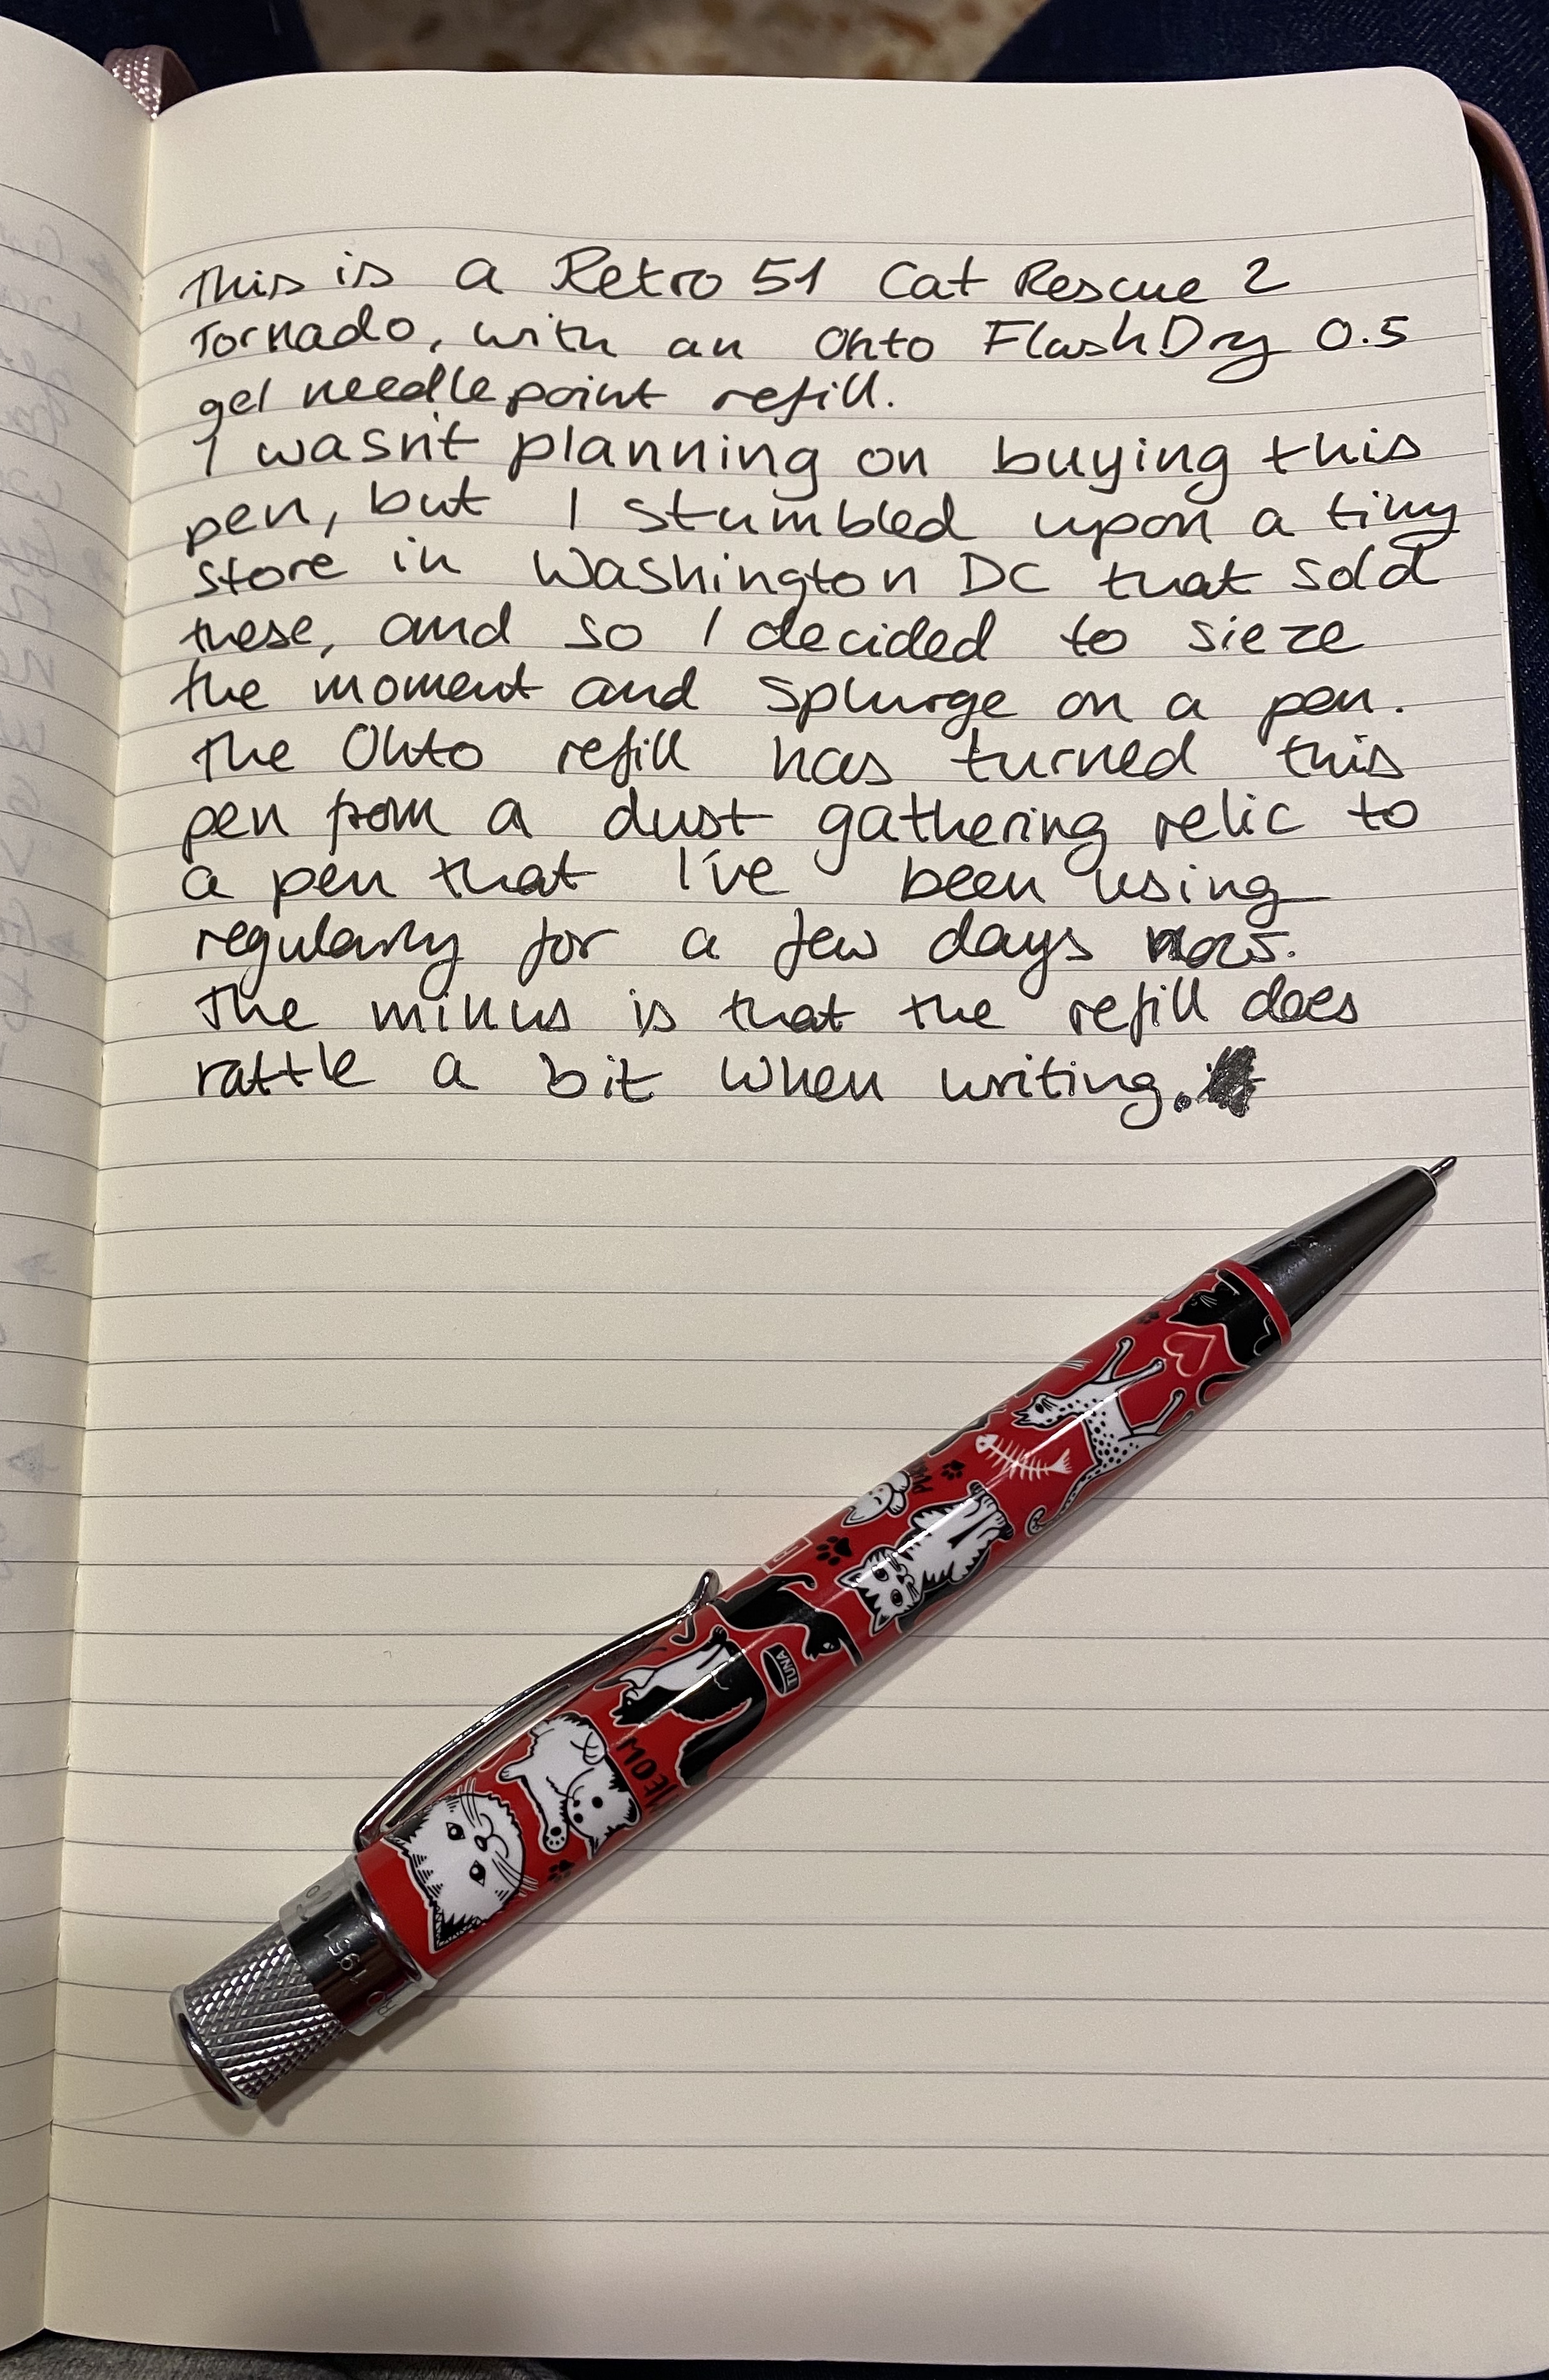 This is a Retro 51 Cat Rescue 2
Tornado, with an Ohto FlashDry 0.5
gel needlepoint refill.
I wasn't planning on buying this
pen, but I stumbled upon a tiny
store in Washington DC that sold
these, and so I decided to sieze
the moment and splurge on a pen.
The Ohto refill has turned this
pen from a dust gathering relic to
a pen that I've been using
regularly for a few days now.
The minus is that the refill does
rattle a bit when writing.
TUNA
MEOW
1951